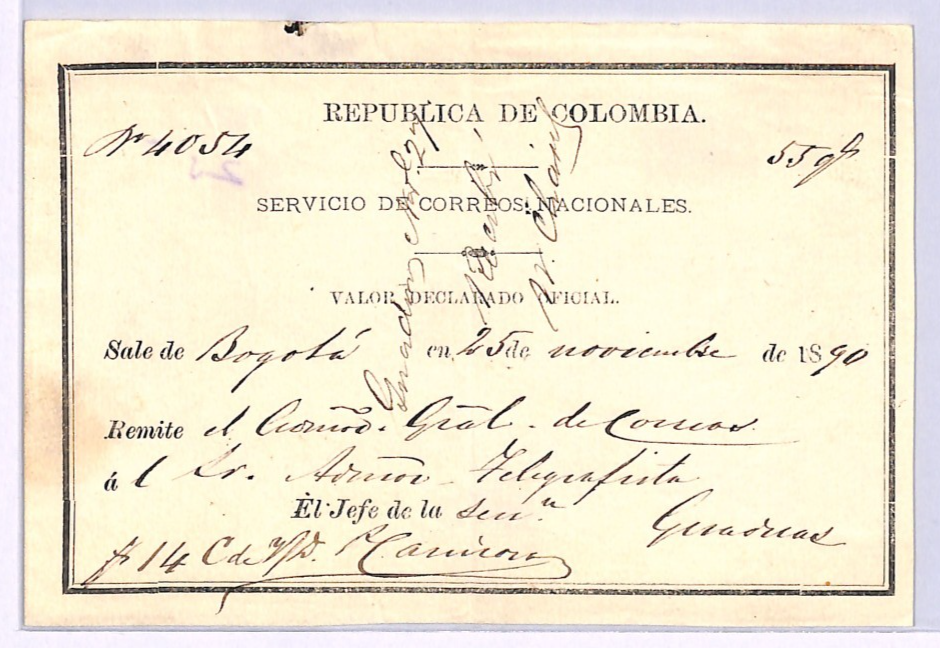 REPUBLICA DE COLOMBIA.
Nº 4054
55 gs
SERVICIO DE CORREOS NACIONALES.
VALOR DECLARADO OFICIAL.
Sale de Bogotá en 25 de noviembre de 1890
Remite el Gral. de Correos
á l Sr. Admor Telegrafista
El Jefe de la Secn.
Guaduas
14
Guaduas Nbre 27
Recibí